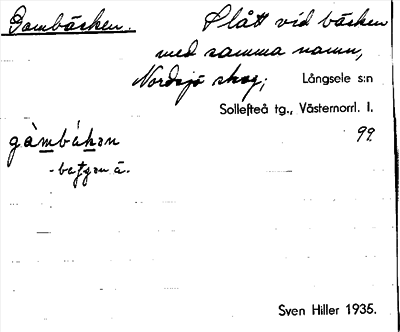 Gambäcken. Slått vid bäcken
med samma namn,
Nordsjö skog; Långsele s:n
Sollefteå tg., Västernorrl. l.
99.
Sven Hiller 1935.